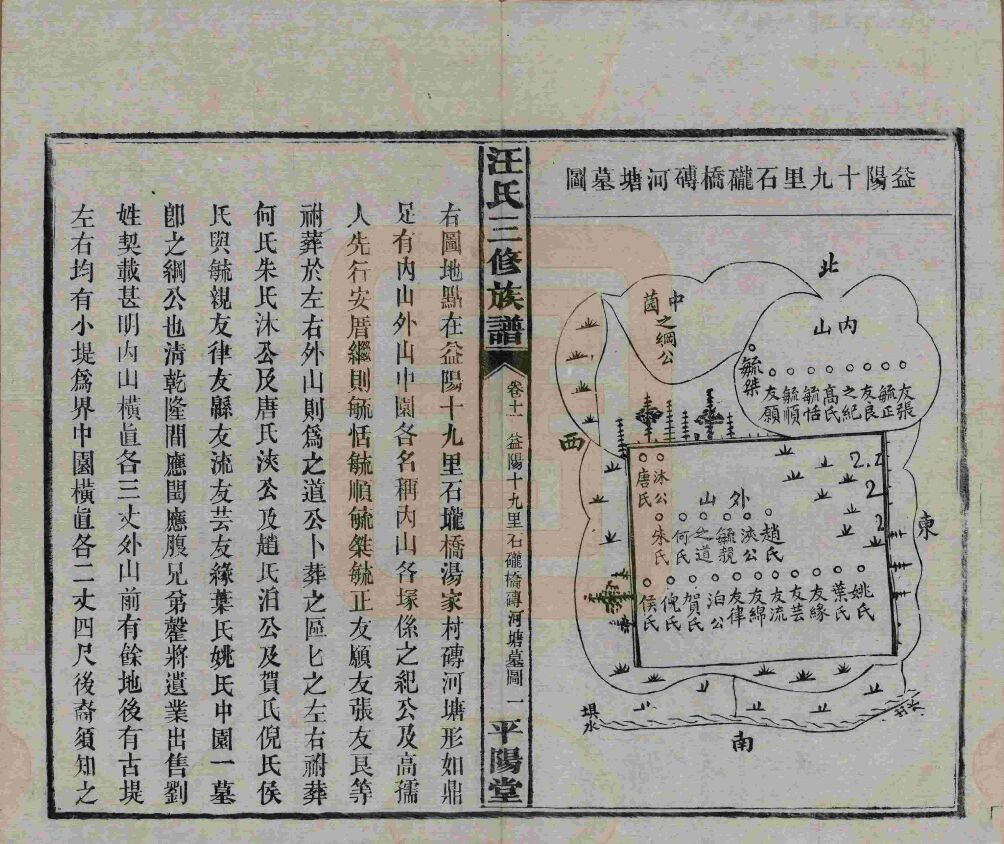 益陽十九里石礲橋磚河塘墓圖
北
中園之綱公
內山
友張
毓正
友良
之紀
高氏
毓恬
毓順
友願
毓桀
西
東
外山
沐公
唐氏
趙氏
浹公
毓親
之道
何氏
朱氏
姚氏
葉氏
友緣
友芸
友流
友綿
友律
泊公
賀氏
倪氏
侯氏
垻水
南
汪氏三修族譜
卷十一
益陽十九里石礲橋磚河塘墓圖
一
平陽堂
右圖地點在益陽十九里石壠橋湯家村磚河塘形如鼎
足有內山外山中園各名稱內山各塚係之紀公及高孺
人先行安厝繼則毓恬毓順毓桀毓正友願友張友良等
祔葬於左右外山則爲之道公卜葬之區匕之左右祔葬
何氏朱氏沐公及唐氏浹公及趙氏泊公及賀氏倪氏侯
氏與毓親友律友緜友流友芸友緣葉氏姚氏中園一墓
卽之綱公也清乾隆間應閏應腹兄弟罄將遺業出售劉
姓契載甚明內山橫直各三丈外山前有餘地後有古堤
左右均有小堤爲界中園橫直各二丈四尺後裔須知之